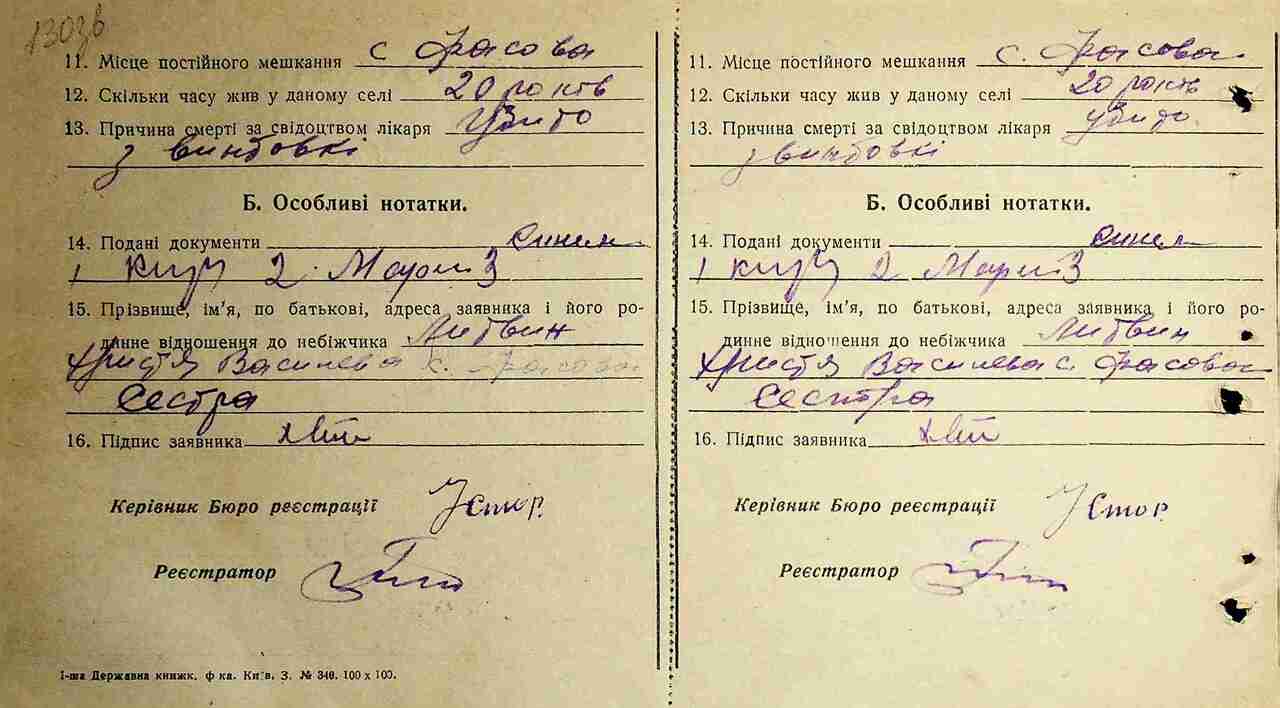 130зв
11. Місце постійного мешкання с Фасова
12. Скільки часу жив у даному селі 20 років
13. Причина смерті за свідоцтвом лікаря Убито
з винтовкі
Б. Особливі нотатки.
14. Подані документи
1 2 3
15. Прізвище, ім'я, по батькові, адреса заявника і його ро-
динне відношення до небіжчика Литвин
Христя Василева с. Фасова
Сестра
16. Підпис заявника
Керівник Бюро реєстрації
Реєстратор
І-ша Державна книжк. ф ка. Київ. З. № 340. 100 x 100.
11. Місце постійного мешкання с. Фасова
12. Скільки часу жив у даному селі 20 років
13. Причина смерті за свідоцтвом лікаря убито
з винтовкі
Б. Особливі нотатки.
14. Подані документи
1 2 3
15. Прізвище, ім'я, по батькові, адреса заявника і його ро-
динне відношення до небіжчика Литвин
Христя Василева с. Фасова
Сестра
16. Підпис заявника
Керівник Бюро реєстрації
Реєстратор